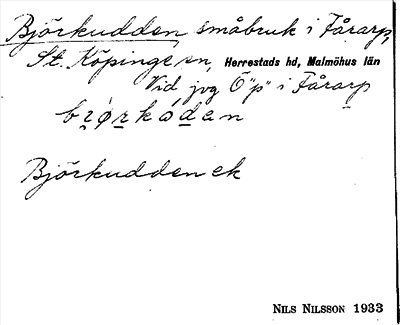 Björkudden, småbruk i Fårarp,
St. Köpinge sn, Herrestads hd, Malmöhus län
Vid jvg Ö "p" i Fårarp
Björkudden ek
NILS NILSSON 1933